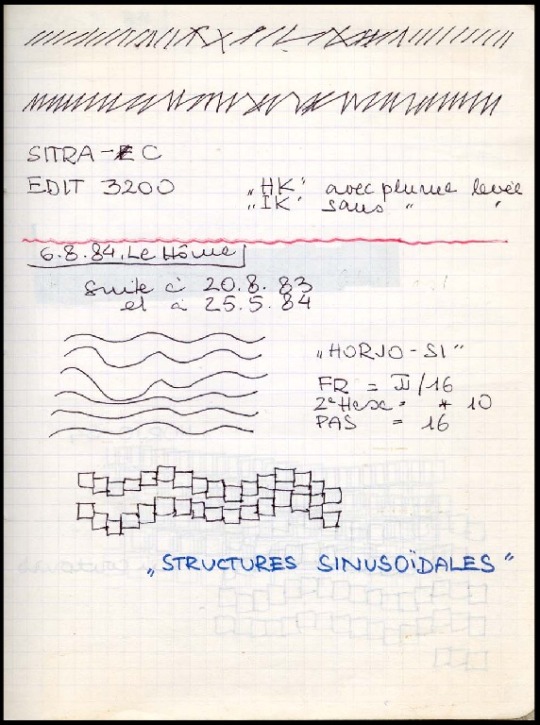 SITRA-EC
EDIT 3200 „HK" avec plume levée
„IK" sans " "
6.8.84. Le Hôme
Suite à 20.8.83
et à 25.5.84
„HORJO-SI"
FR = π/16
2e Hesc = * 10
PAS = 16
„STRUCTURES SINUSOÏDALES"